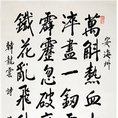 安海州
萬斛熱血十
淬盡一釼
霹靂忽破
鐵花亂飛
韓龍雲詩